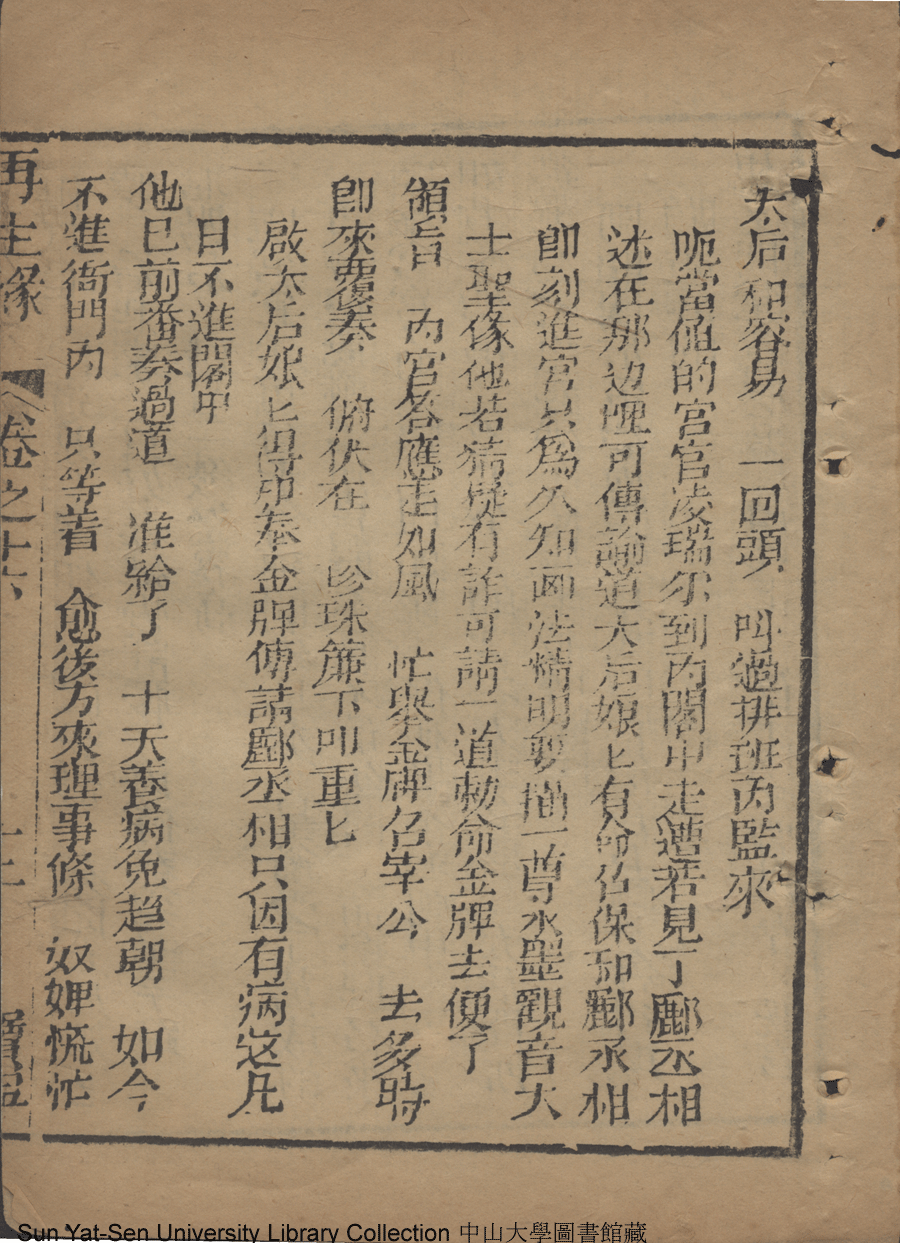 太后和容易　一回頭　叫過排班內監來
呃當值的宮官凌瑞尔到內閣中走遭若見了酈丞相
述在那边哩可傳諭道太后娘匕有命仫保和酈丞相
卽刻進宮只爲久知画法精明要描一尊水墨觀音大
士聖像他若猜疑有詐可請一道勅命金牌去便了
領旨　內官答應走如風　忙舉金牌名宰公　去多時
卽來覆奏　俯伏在　珍珠簾下叩重匕
啟太后娘匕得知奉金牌傳請酈丞相只因有病这几
日不進閣中
他已前番奏過道　准給了　十天養病免趋朝　如今
不進衙門內　只等着　愈後方來理事條　奴婢慌忙
再生緣　卷之十六
Sun Yat-Sen University Library Collection 中山大學圖書館藏